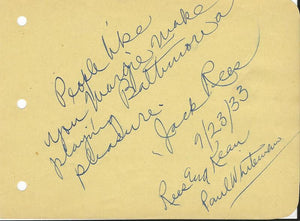 People like
you Margie make
playing Baltimore a
pleasure.
"Jack Rees
9/23/33
Paul Whiteman